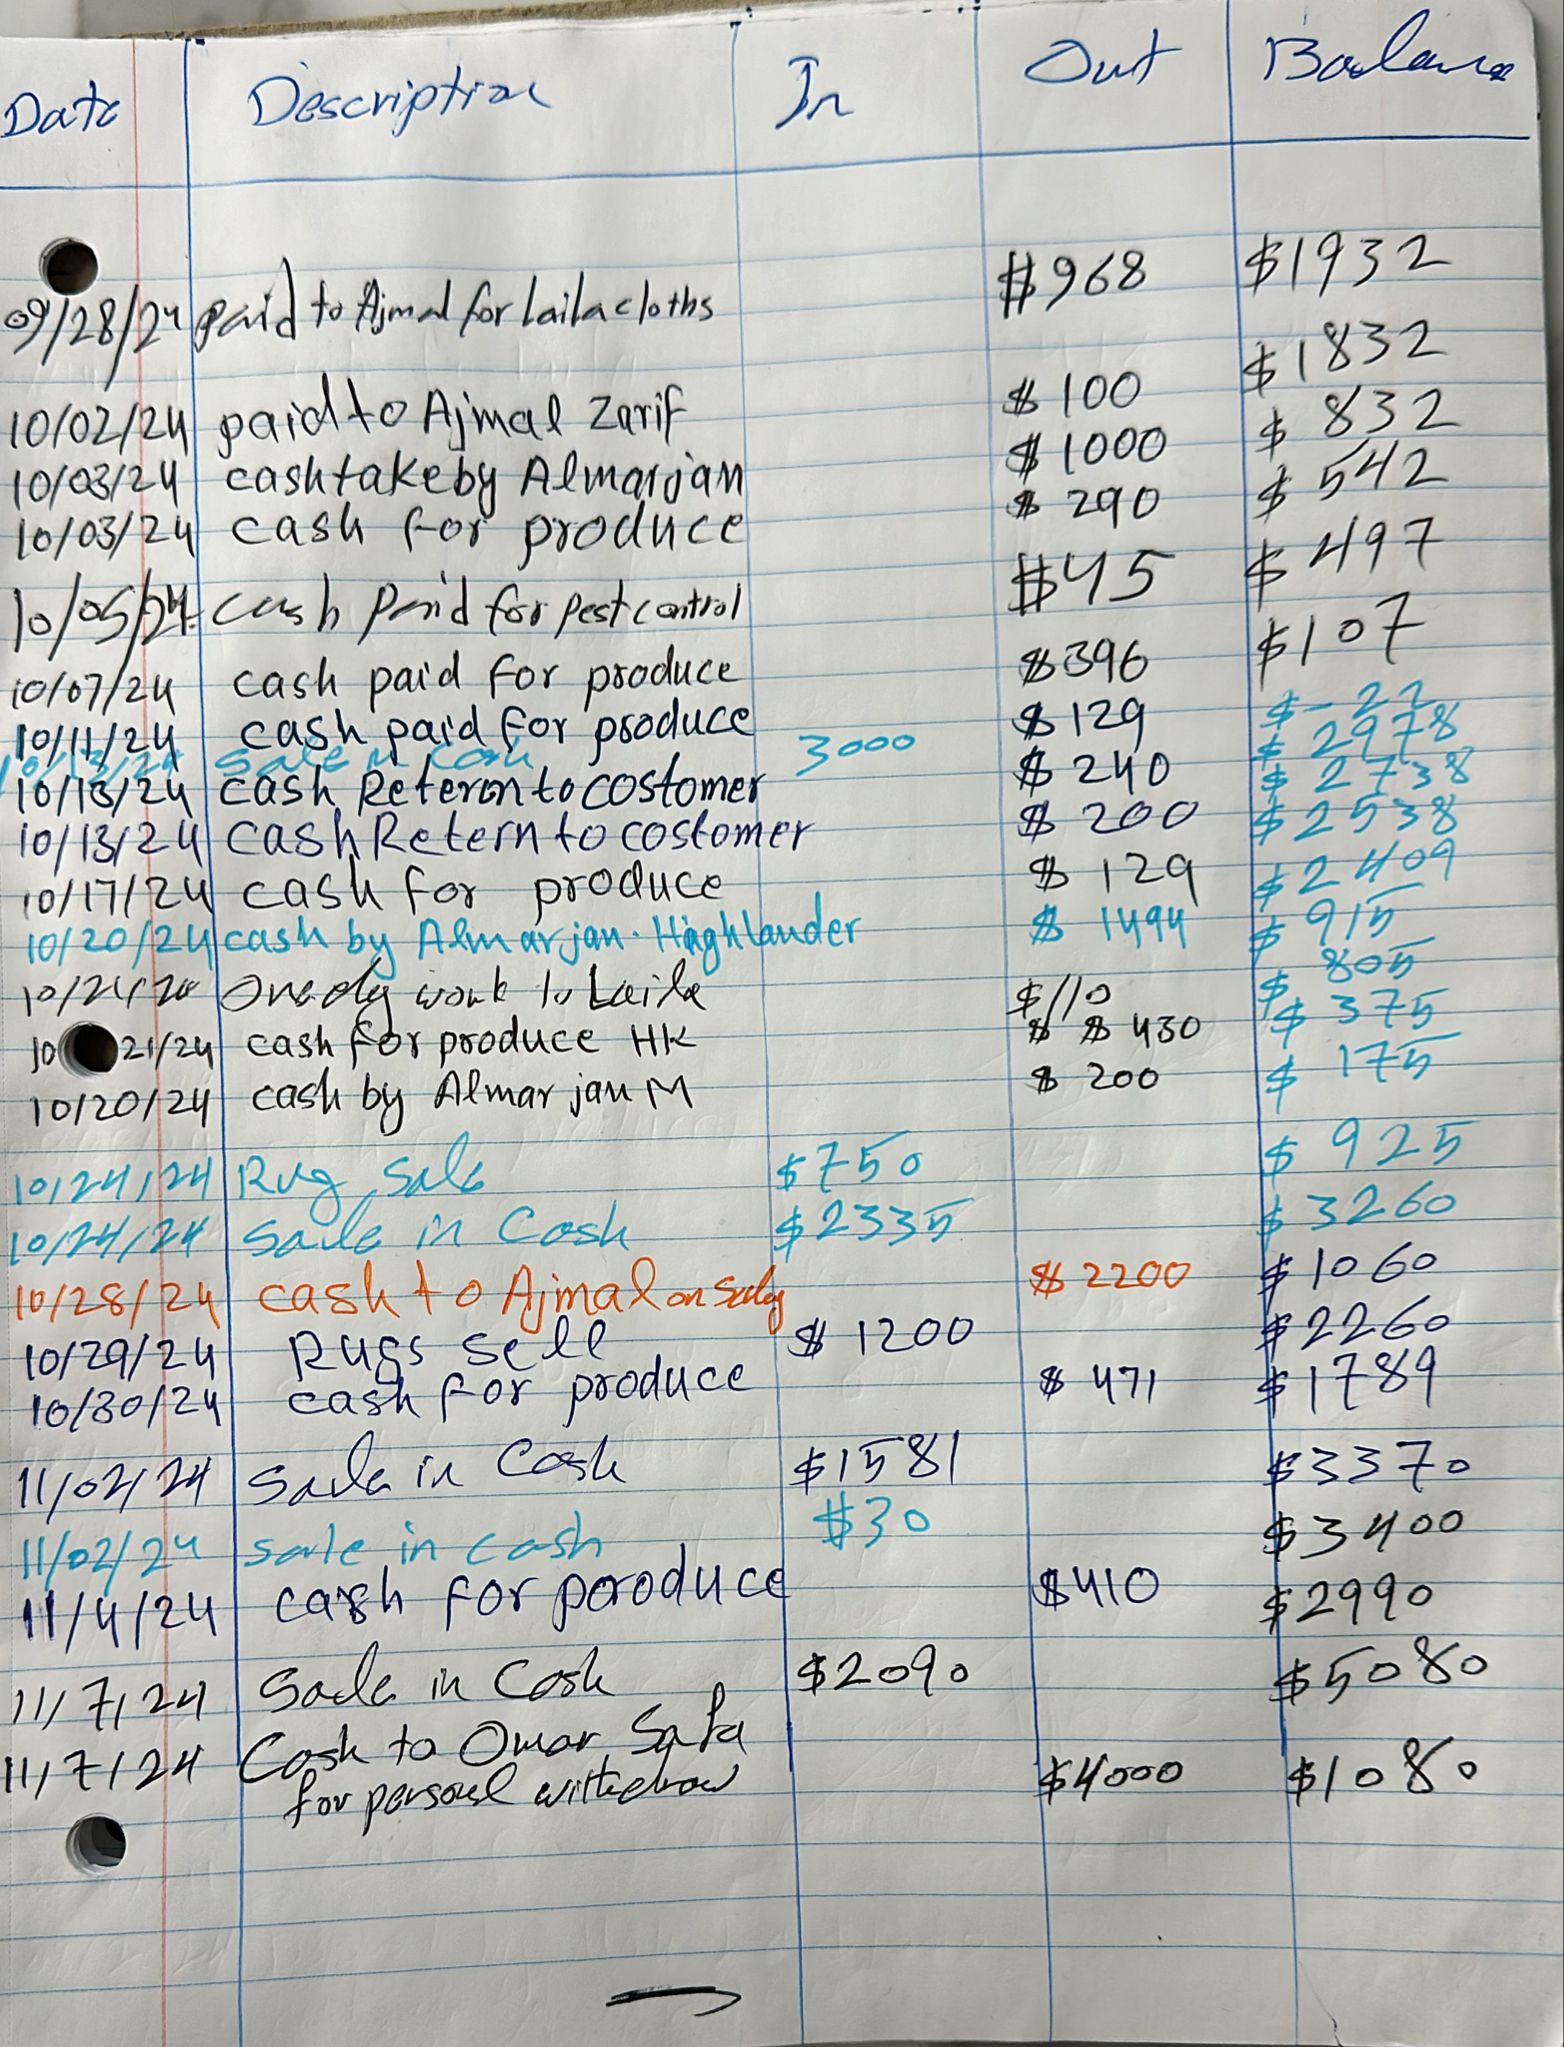 Date Description In Out Balance
09/28/24 paid to Ajmal for Laila cloths $968 $1932
10/02/24 paid to Ajmal Zarif $100 $1832
10/03/24 cash take by Almarjan $1000 $832
10/03/24 cash for produce $290 $542
10/05/24 cash paid for pest control $45 $497
10/07/24 cash paid for produce $396 $107
10/11/24 cash paid for produce $129 $-22
10/13/24 Sale in Cash 3000 $2978
10/13/24 cash Reteren to costomer $240 $2738
10/13/24 cash Retern to costomer $200 $2538
10/17/24 cash for produce $129 $2409
10/20/24 cash by Almarjan. Highlander $1494 $915
One day work to Laila $110 $805
10 21/24 cash for produce HK $ $430 $375
10/20/24 cash by Almarjan M $200 $175
10/24/24 Rug Sale $750 $925
10/24/24 Sale in Cash $2335 $3260
10/28/24 cash to Ajmal on $2200 $1060
10/29/24 Rugs sell $1200 $2260
10/30/24 cash for produce $471 $1789
11/02/24 Sale in Cash $1581 $3370
11/02/24 sale in cash $30 $3400
11/4/24 cash for poroduce $410 $2990
11/7/24 Sale in Cash $2090 $5080
11/7/24 Cash to Omar Safa
for personal withdraw $4000 $1080